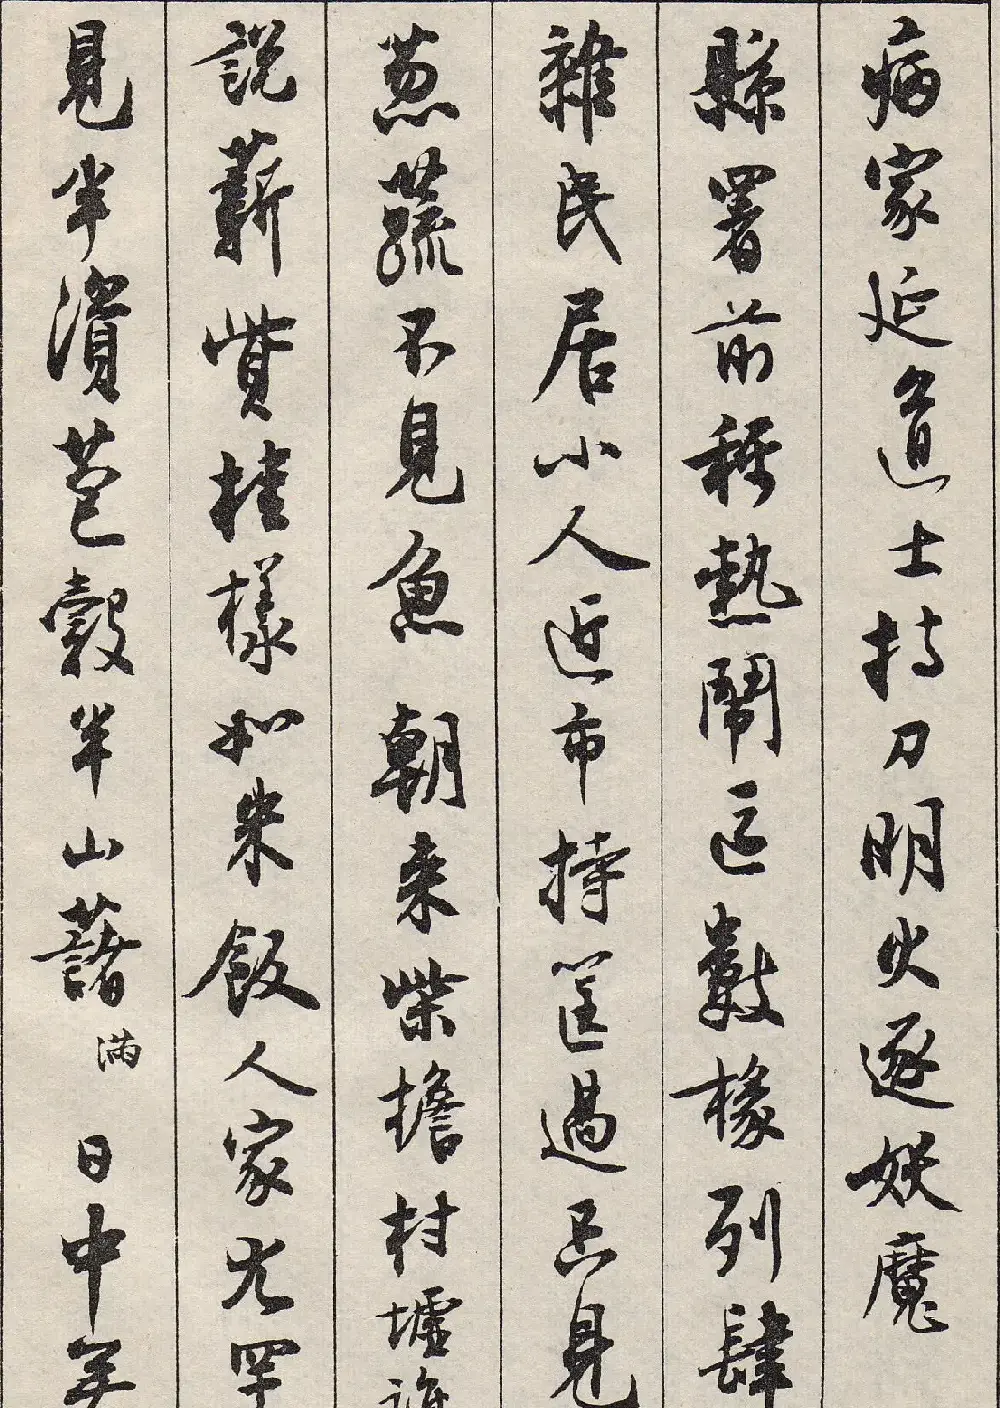 病家延道士持刀明火逐妖魔
縣署前稱熱鬧區數椽列肆
雜民居小人近市持筐過只見
葱蔬不見魚 朝来柴擔村墟
說薪貲桂樣如米飯人家尤罕
見半濱苞穀半山藷 滿 日中